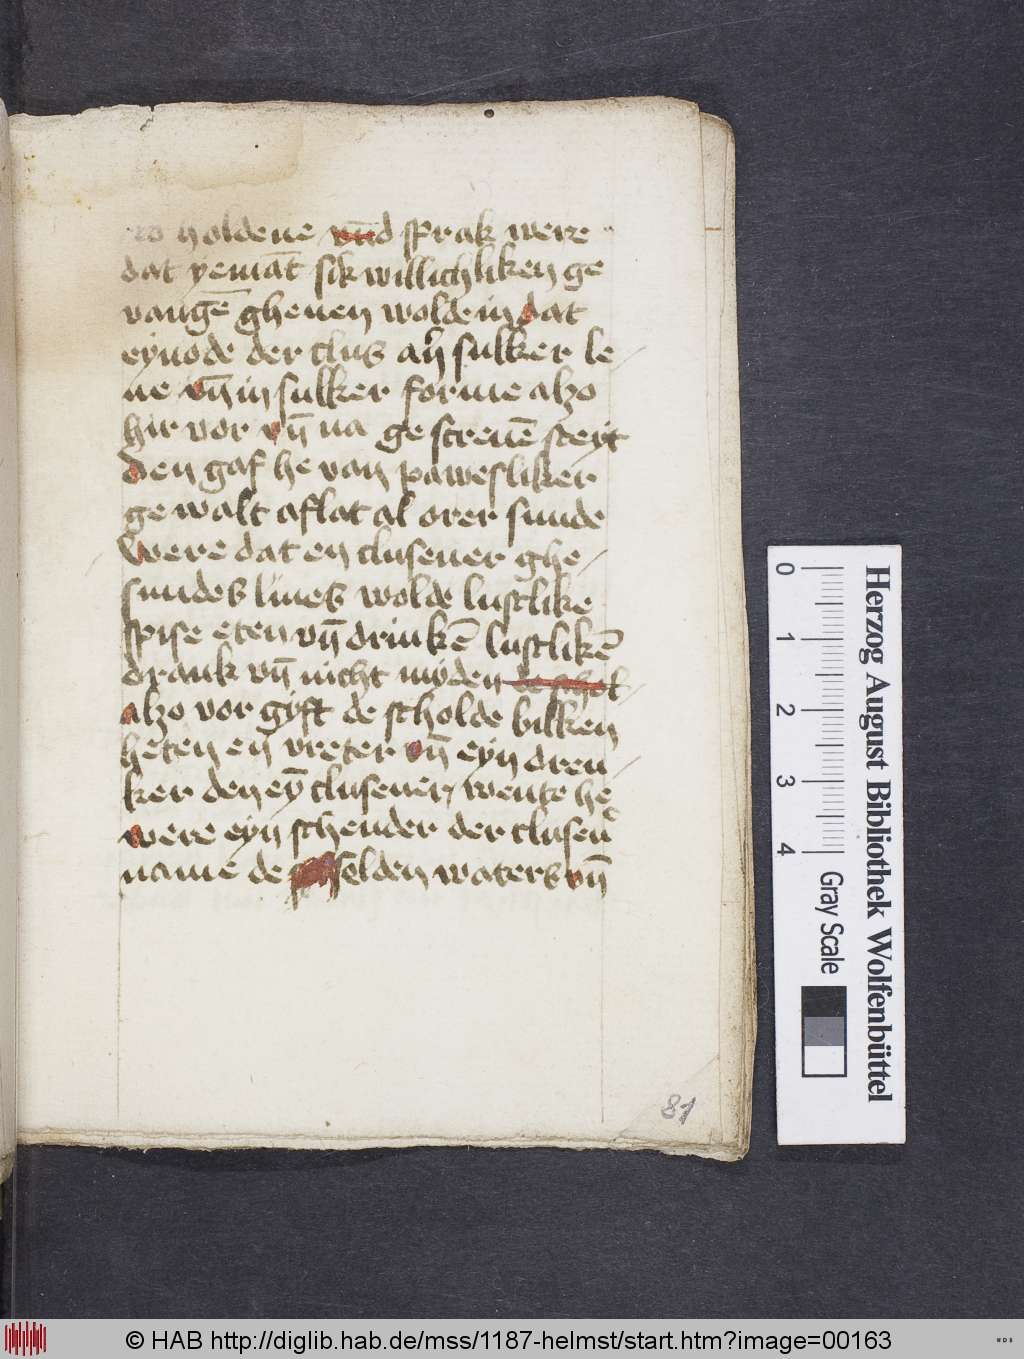 to holdene vn̄d sprak were
dat yemāt sik willichliken ge
vangē gheuen wolde in dat
eynode der clus an̄ sulker le
ue vn̄ in sulker forme alzo
hir vor vn̄ na ge screuē steyt
den gaf he van pawesliker
ge walt aflat al orer sunde
Were dat en clusener ghe
sundes liues wolde lustlike
spise eten vn̄ drinkē lustlikē
drank vn̄ nicht myden
alzo vor gyft de scholde bilken
heten en̄ vreter vn̄ eyn dren
ker den eȳ clusener / wente he
were eyn schender der clusen
name de solden waters vn̄
81
0 1 2 3 4
Herzog August Bibliothek Wolfenbüttel
Gray Scale
© HAB http://diglib.hab.de/mss/1187-helmst/start.htm?image=00163
WDB